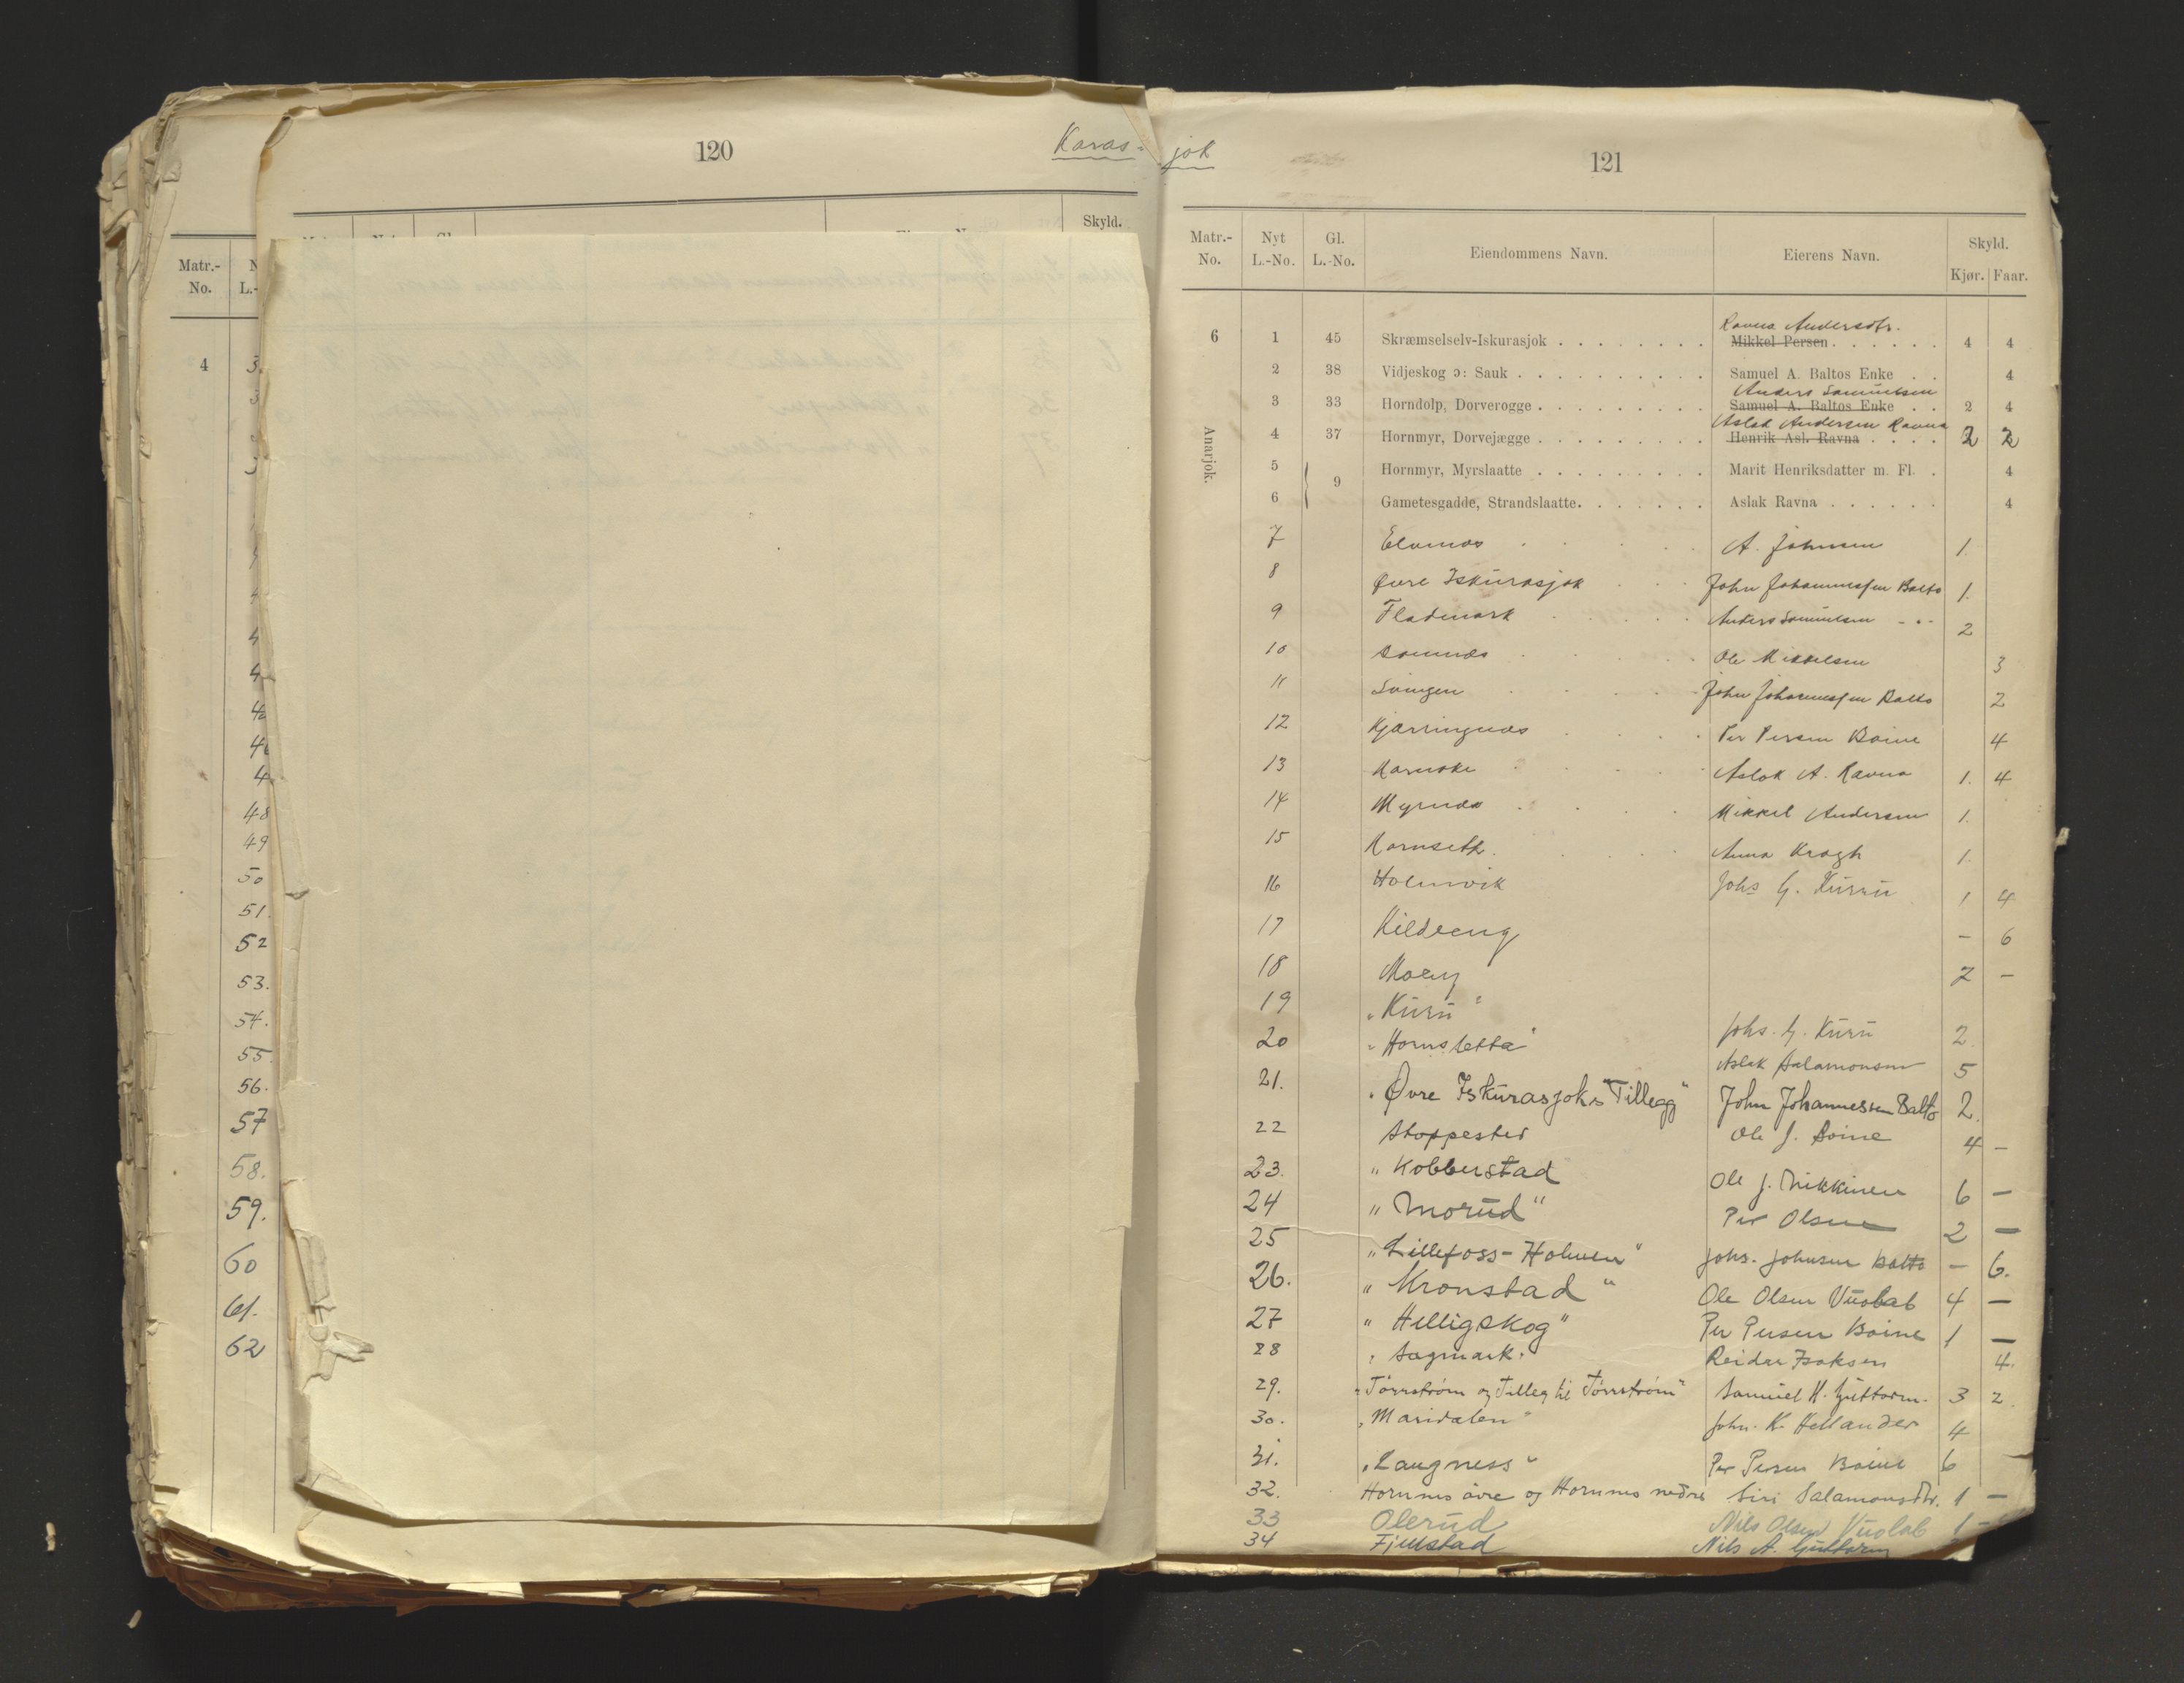 120
Karas-
Skyld.
Matr.-
No.
4
48
49
50
51.
52
53.
54.
55.
56.
57
58.
59.
60
61.
62
jok
121
Matr.-No. Nyt L.-No. Gl. L.-No. Eiendommens Navn. Eierens Navn. Skyld. Kjør. Faar.
Anarjok.
Ravna Andersdtr.
6 1 45 Skræmselselv-Iskurasjok . . . . . . . . Mikkel Persen . . . . . . 4 4
2 38 Vidjeskog ɔ: Sauk . . . . . . . . . . Samuel A. Baltos Enke . . 4
Anders Samuelsen
3 33 Horndolp, Dorverogge . . . . . . . . . Samuel A. Baltos Enke . . 2 4
Aslak Andersen Ravna
4 37 Hornmyr, Dorvejægge . . . . . . . . . Henrik Asl. Ravna . . . . 2 2
5 Hornmyr, Myrslaatte . . . . . . . . . Marit Henriksdatter m. Fl. . 4
9
6 Gametesgadde, Strandslaatte . . . . . . . Aslak Ravna . . . . . . 4
7 Elvenæs A. Johnsen 1.
8 Øvre Iskurasjok John Johannessen Balto 1.
9 Fladmark Anders Samuelsen - " - 2
10 Ole Mikkelsen 3
11 Svingen John Johannessen Balto 2
12 Kjærringnæs Per Persen Boine 4
13 Aslak A. Ravna 1. 4
14 Myrnæs Mikkel Andersen 1.
15 Hornseth. Anna Kragh 1.
16 Holmvik Johs G. Kurru 1 4
17 Kildeeng - 6
18 Moeng 2 -
19 "Kuru"
20 "Hornsletta" Johs. G. Kuru 2
Aslak Salamonsen 5
21. "Øvre Iskurasjoks Tillegg" John Johannessen Balto 2.
22 Stoppested Ole J. Boine 4 -
23. " Kobberstad Ole J. Nikkinen 6 -
24 " Morud " Per Olsen 2 -
25 " Lillefoss-Holmen " Johs. Johnsen Balto - 6.
26. " Kronstad " Ole Olsen Vuolab 4 -
27 " Helligskog " Per Persen Boine 1 -
28 " Sagmark " Reidar Isaksen 4.
29. "Törrström og Tilleg til Törrström" Samuel H. Guttorm. 3 2.
30. "Maridalen" John. K. Hellander 4
31. "Langness" Per Persen Boine 6
32. Hornnes övre og Hornnes nedre Siri Salamonsdtr. 1 -
33 Olerud Nils Olsen Vuolab 1 -
34 Fjellstad Nils A. Guttorm